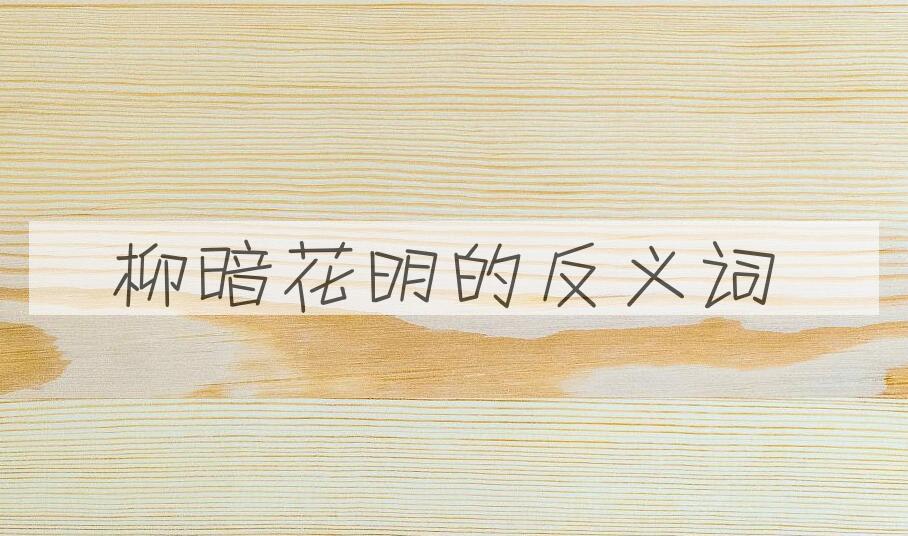 柳暗花明的反义词